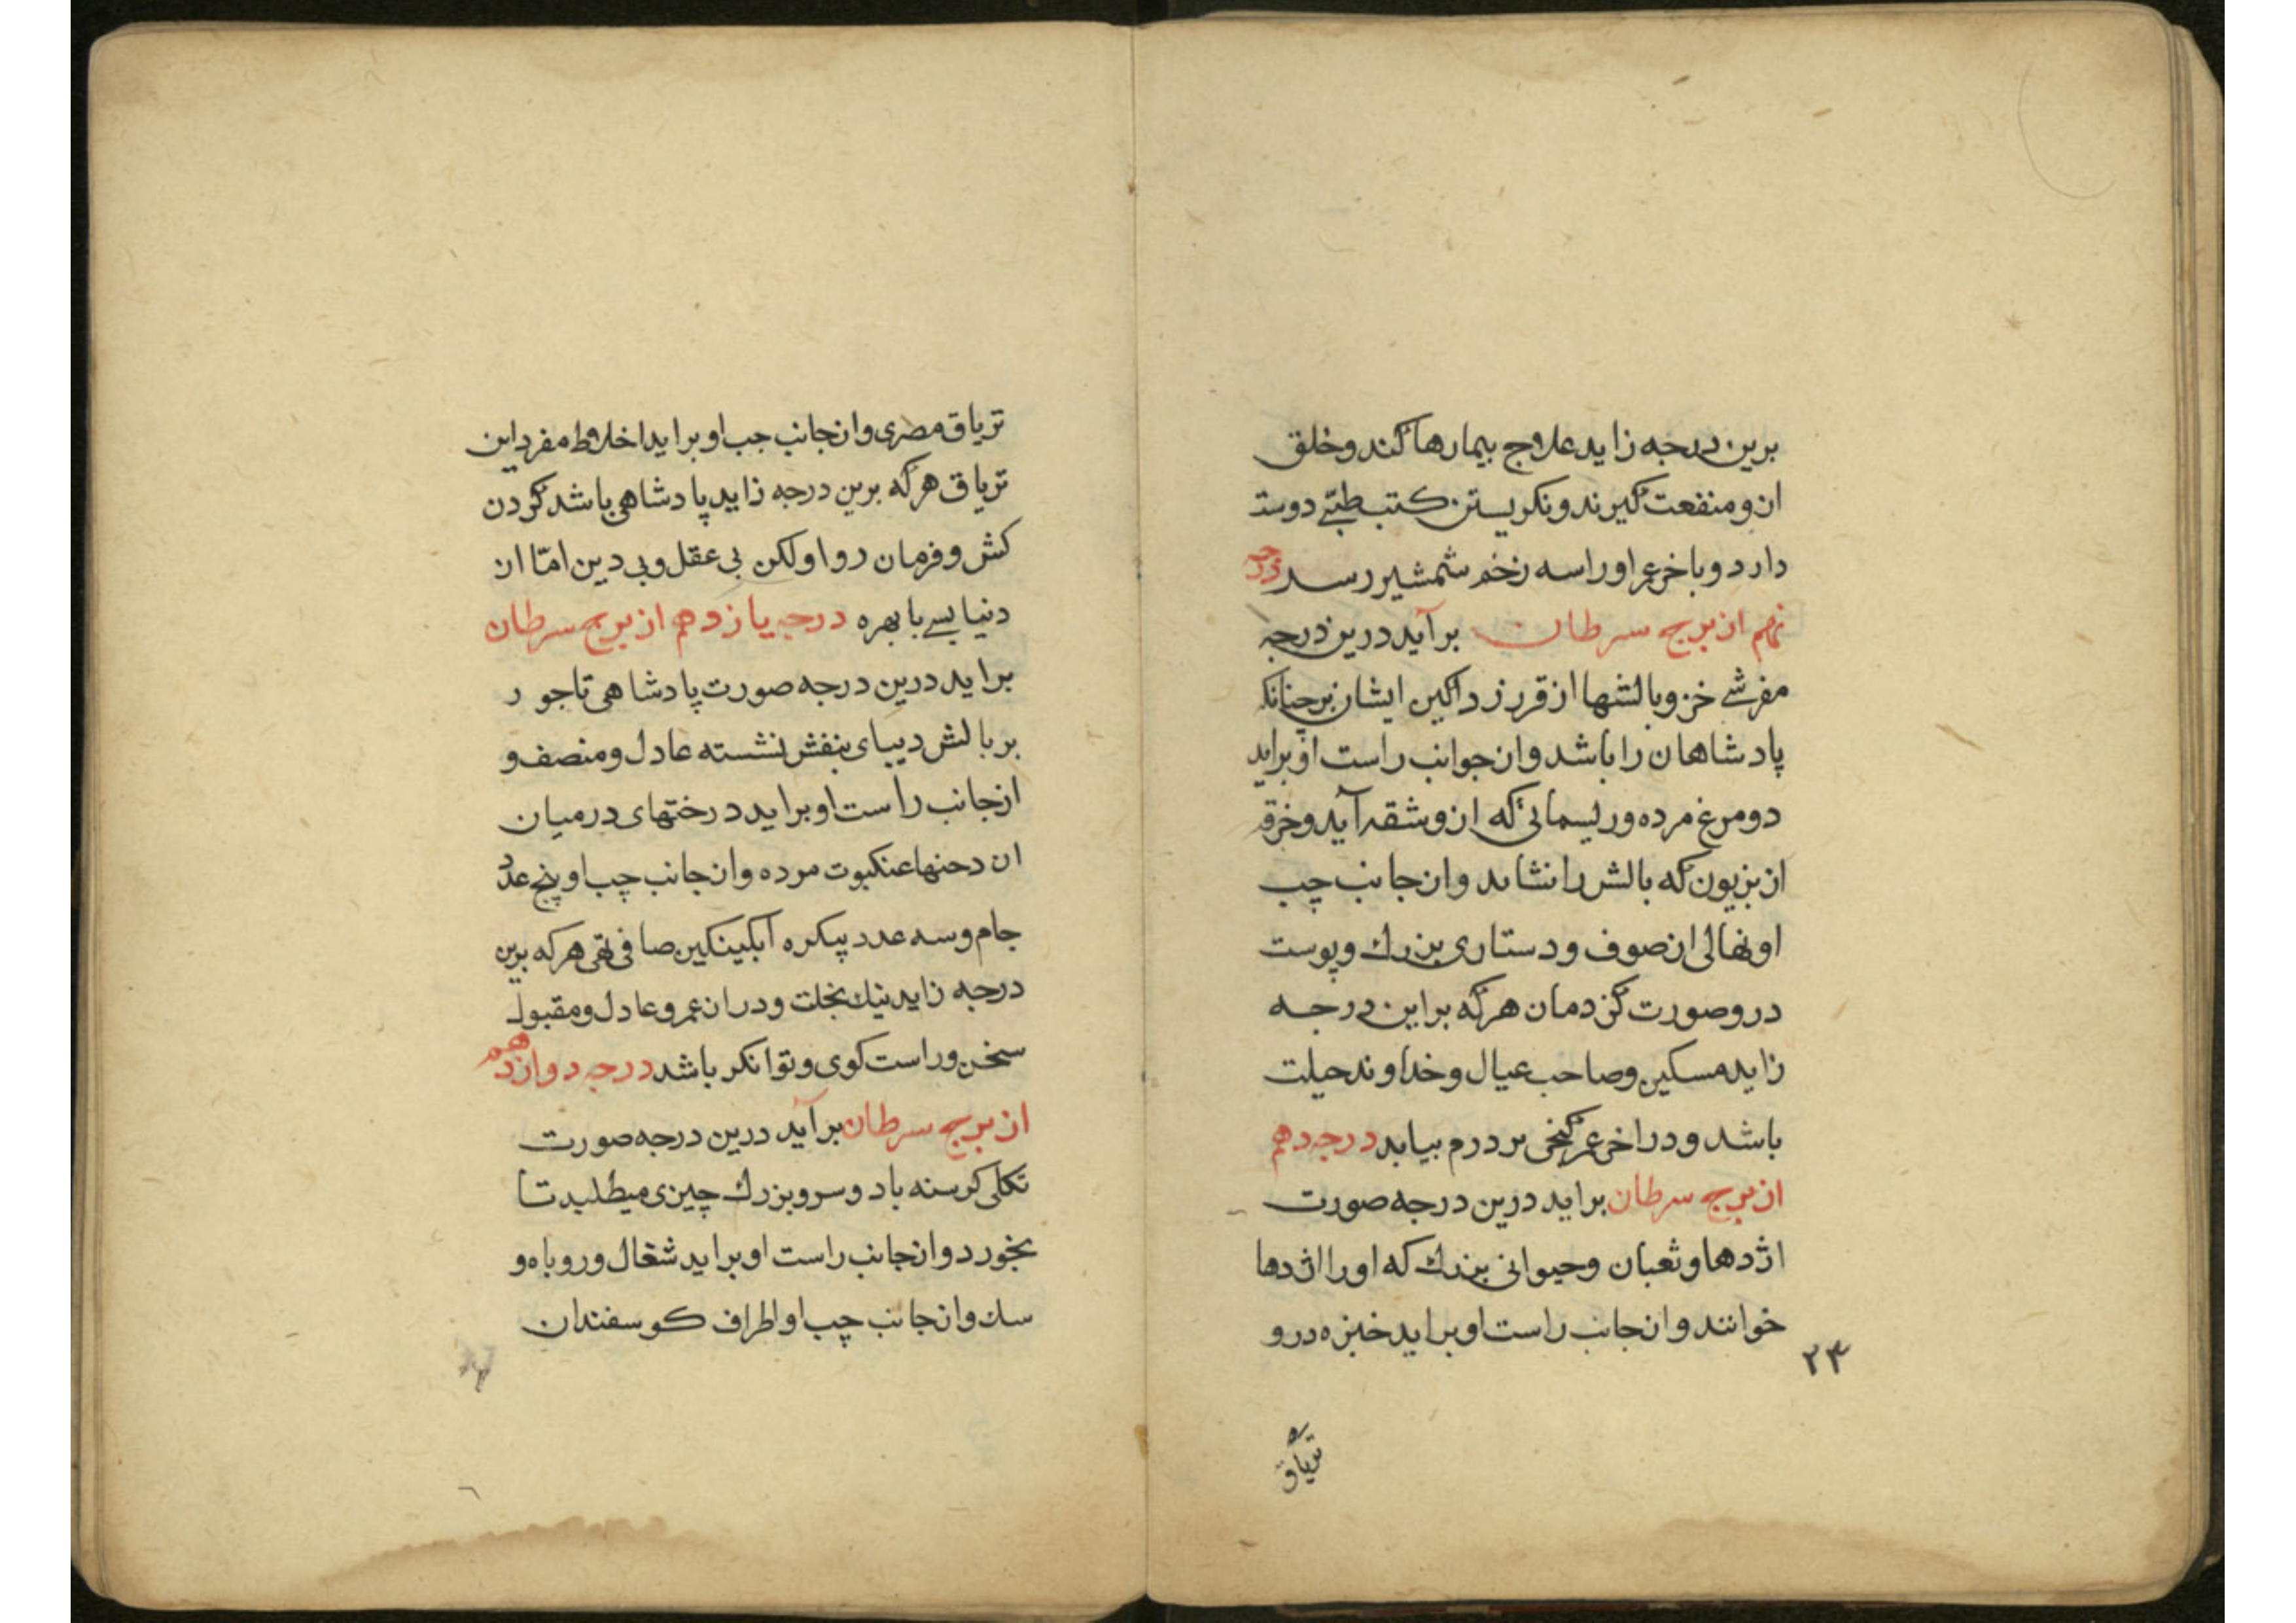 برین درجه زاید علاج بیمارها کند و خلق
ازو منفعت کیرند و نکریستن کتب طبّی دوست
دارد و باخر عمر اورا سه زخم شمشیر رسد درجه
نهم از برج سرطان برآید درین درجه
مفرشی خز و بالشها از قز ایشان بر چنانک
پادشاهان را باشد و از جوانب راست او براید
دو مرغ مرده و ریسمانی که ازو شقه آید و خرقه
از بزیون که بالش را نشاید و از جانب چپ
او نهالی از صوف و دستاری بزرك و پوست
درو صورت کزدمان هرکه براین درجه
زاید مسکین و صاحب عیال و خداوند حیلت
باشد و در اخر عمر کنجی بر درم بیابد درجه دهم
از برج سرطان براید درین درجه صورت
اژدها و ثعبان و حیوانی بزرك که اورا اژدها
خوانند و از جانب راست او براید خبزه درو
۲۴
تریاق
تریاق مصری و از جانب جب او براید اخلاط مفرد این
تریاق هرکه برین درجه زاید پادشاهی باشد کردن
کش و فرمان روا ولکن بی عقل و بی دین امّا از
دنیا بسی با بهره درجه یازدهم از برج سرطان
براید درین درجه صورت پادشاهی تاجور
بر بالش دیبای بنفش نشسته عادل و منصف و
از جانب راست او براید درختهای در میان
ان عنکبوت مرده و از جانب چپ او پنج عدد
جام و سه عدد پیکره آبکینکین صافی نقی هرکه برین
درجه زاید نیك بخت و دراز عمر و عادل و مقبول
سخن و راست کوی و توانکر باشد درجه دوازدهم
از برج سرطان برآید درین درجه صورت
کرسنه با دو سر و بزرك چیزی میطلبد تا
بخورد و از جانب راست او براید شغال و روباه و
سك و از جانب چپ او اطراف کوسفندان